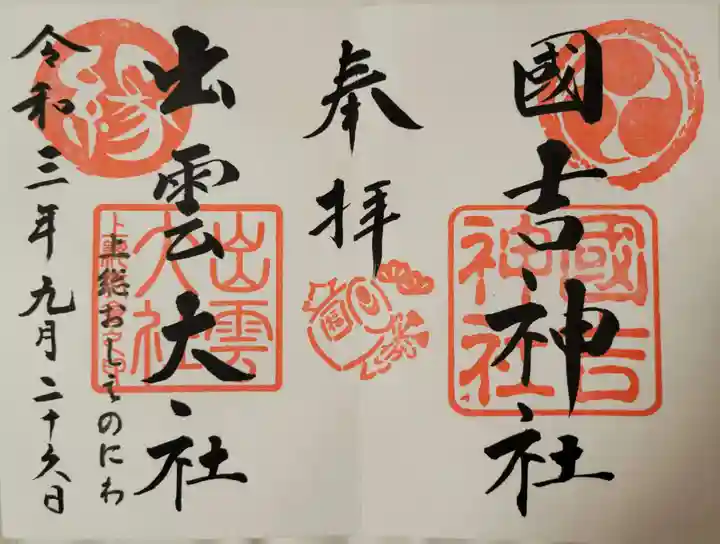 國吉神社
國吉神社
奉拝
福
出雲大社
出雲大社
縁
上総おしえのにわ
令和三年九月二十六日